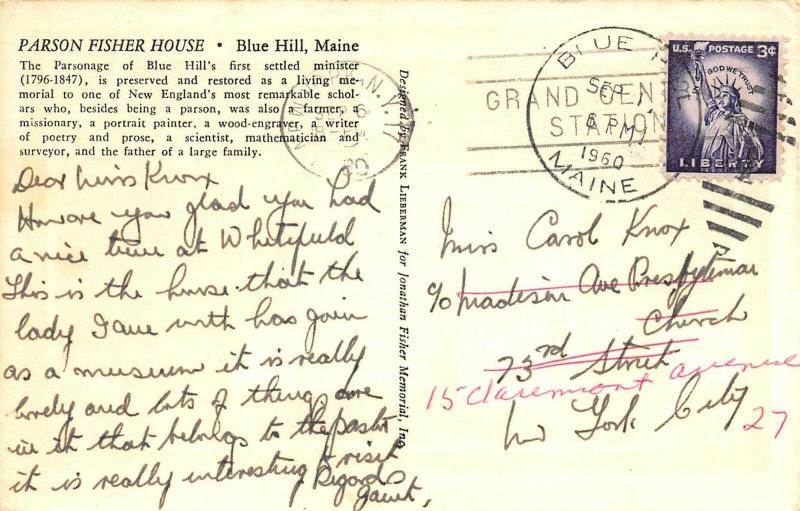 PARSON FISHER HOUSE • Blue Hill, Maine
The Parsonage of Blue Hill's first settled minister
(1796-1847), is preserved and restored as a living me-
morial to one of New England's most remarkable schol-
ars who, besides being a parson, was also a farmer, a
missionary, a portrait painter, a wood-engraver, a writer
of poetry and prose, a scientist, mathematician and
surveyor, and the father of a large family.
Dear Miss Knox
How are you glad you had
a nice time at Whitefield
This is the house that the
lady I am with has
as a museum it is really
lovely and lots of things are
in it that belongs to the pastor
it is really interesting to visit
Regards
Designed by FRANK LIEBERMAN for Jonathan Fisher Memorial, Inc.
N.Y.
BLUE
SEP
PM
1960
MAINE
GRAND CEN
STATION
U.S. POSTAGE 3¢
IN GOD WE TRUST
LIBERTY
Miss Carol Knox
c/o Madison Ave Presbyterian
Church
73rd Street
15 Claremont avenue
New York City
27